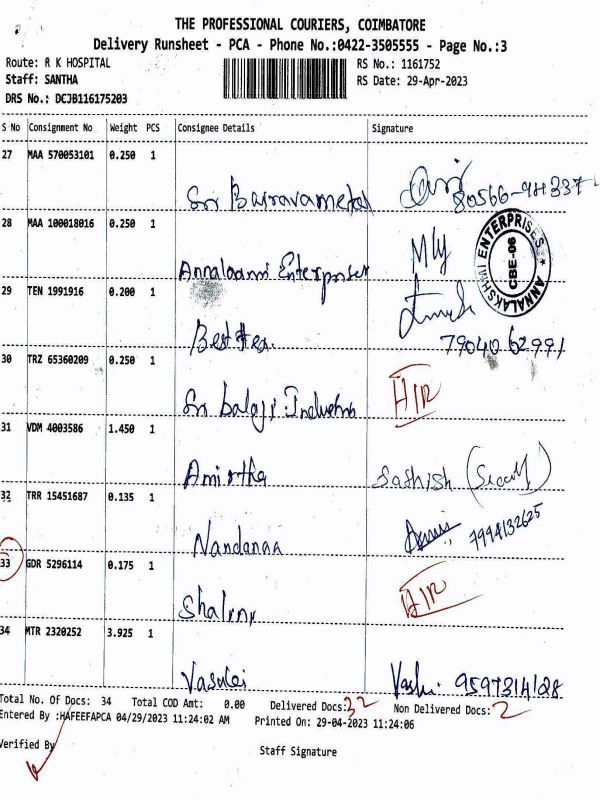 THE PROFESSIONAL COURIERS, COIMBATORE
Delivery Runsheet - PCA - Phone No.:0422-3505555 - Page No.:3
Route: R K HOSPITAL RS No.: 1161752
Staff: SANTHA RS Date: 29-Apr-2023
DRS No.: DCJB116175203
S No Consignment No Weight PCS Consignee Details Signature
27 MAA 570053101 0.250 1
Sri Bairavametal
28 MAA 100018016 0.250 1
ANNALAKSHMI ENTERPRISES ★ CBE-06
Enterprises
29 TEN 1991916 0.200 1
Best tex. 79040 62991
30 TRZ 65360209 0.250 1
Sri balaji A/R
31 VDM 4003586 1.450 1
Amirtha Sathish
32 TRR 15451687 0.135 1
Nandanaa 7994132625
33 GDR 5296114 0.175 1
A/R
34 MTR 2320252 3.925 1
9597314128
Total No. Of Docs: 34 Total COD Amt: 0.00 Delivered Docs: 32 Non Delivered Docs: 2
Entered By :HAFEEFAPCA 04/29/2023 11:24:02 AM Printed On: 29-04-2023 11:24:06
Verified By Staff Signature